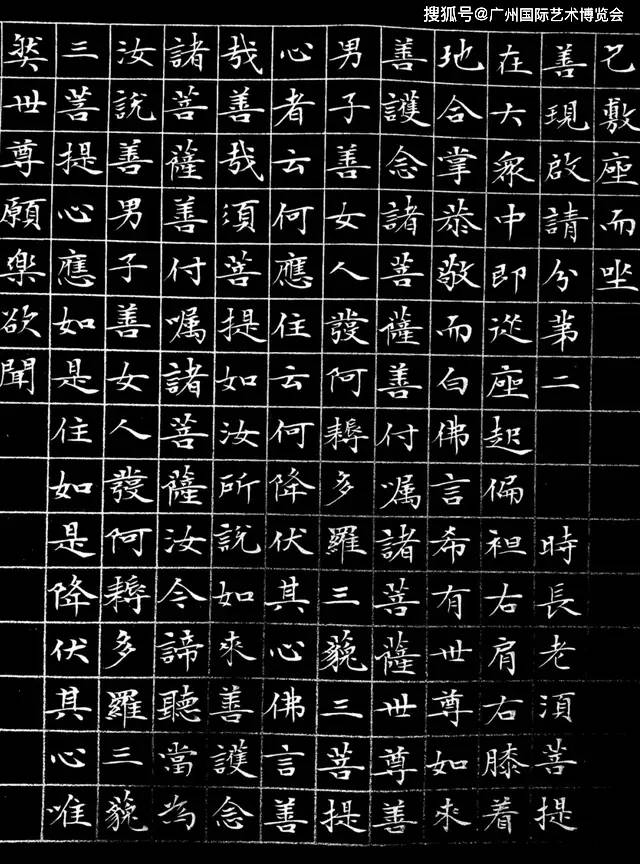 搜狐号@广州国际艺术博览会
已敷座而坐
善現啟請分第二 時長老須菩提
在大眾中即從座起偏袒右肩右膝着
地合掌恭敬而白佛言希有世尊如來
善護念諸菩薩善付嘱諸菩薩世尊善
男子善女人發阿耨多羅三藐三菩提
心者云何應住云何降伏其心佛言善
哉善哉須菩提如汝所說如來善護念
諸菩薩善付嘱諸菩薩汝今諦聽當為
汝說善男子善女人發阿耨多羅三藐
三菩提心應如是住如是降伏其心唯
然世尊願樂欲聞